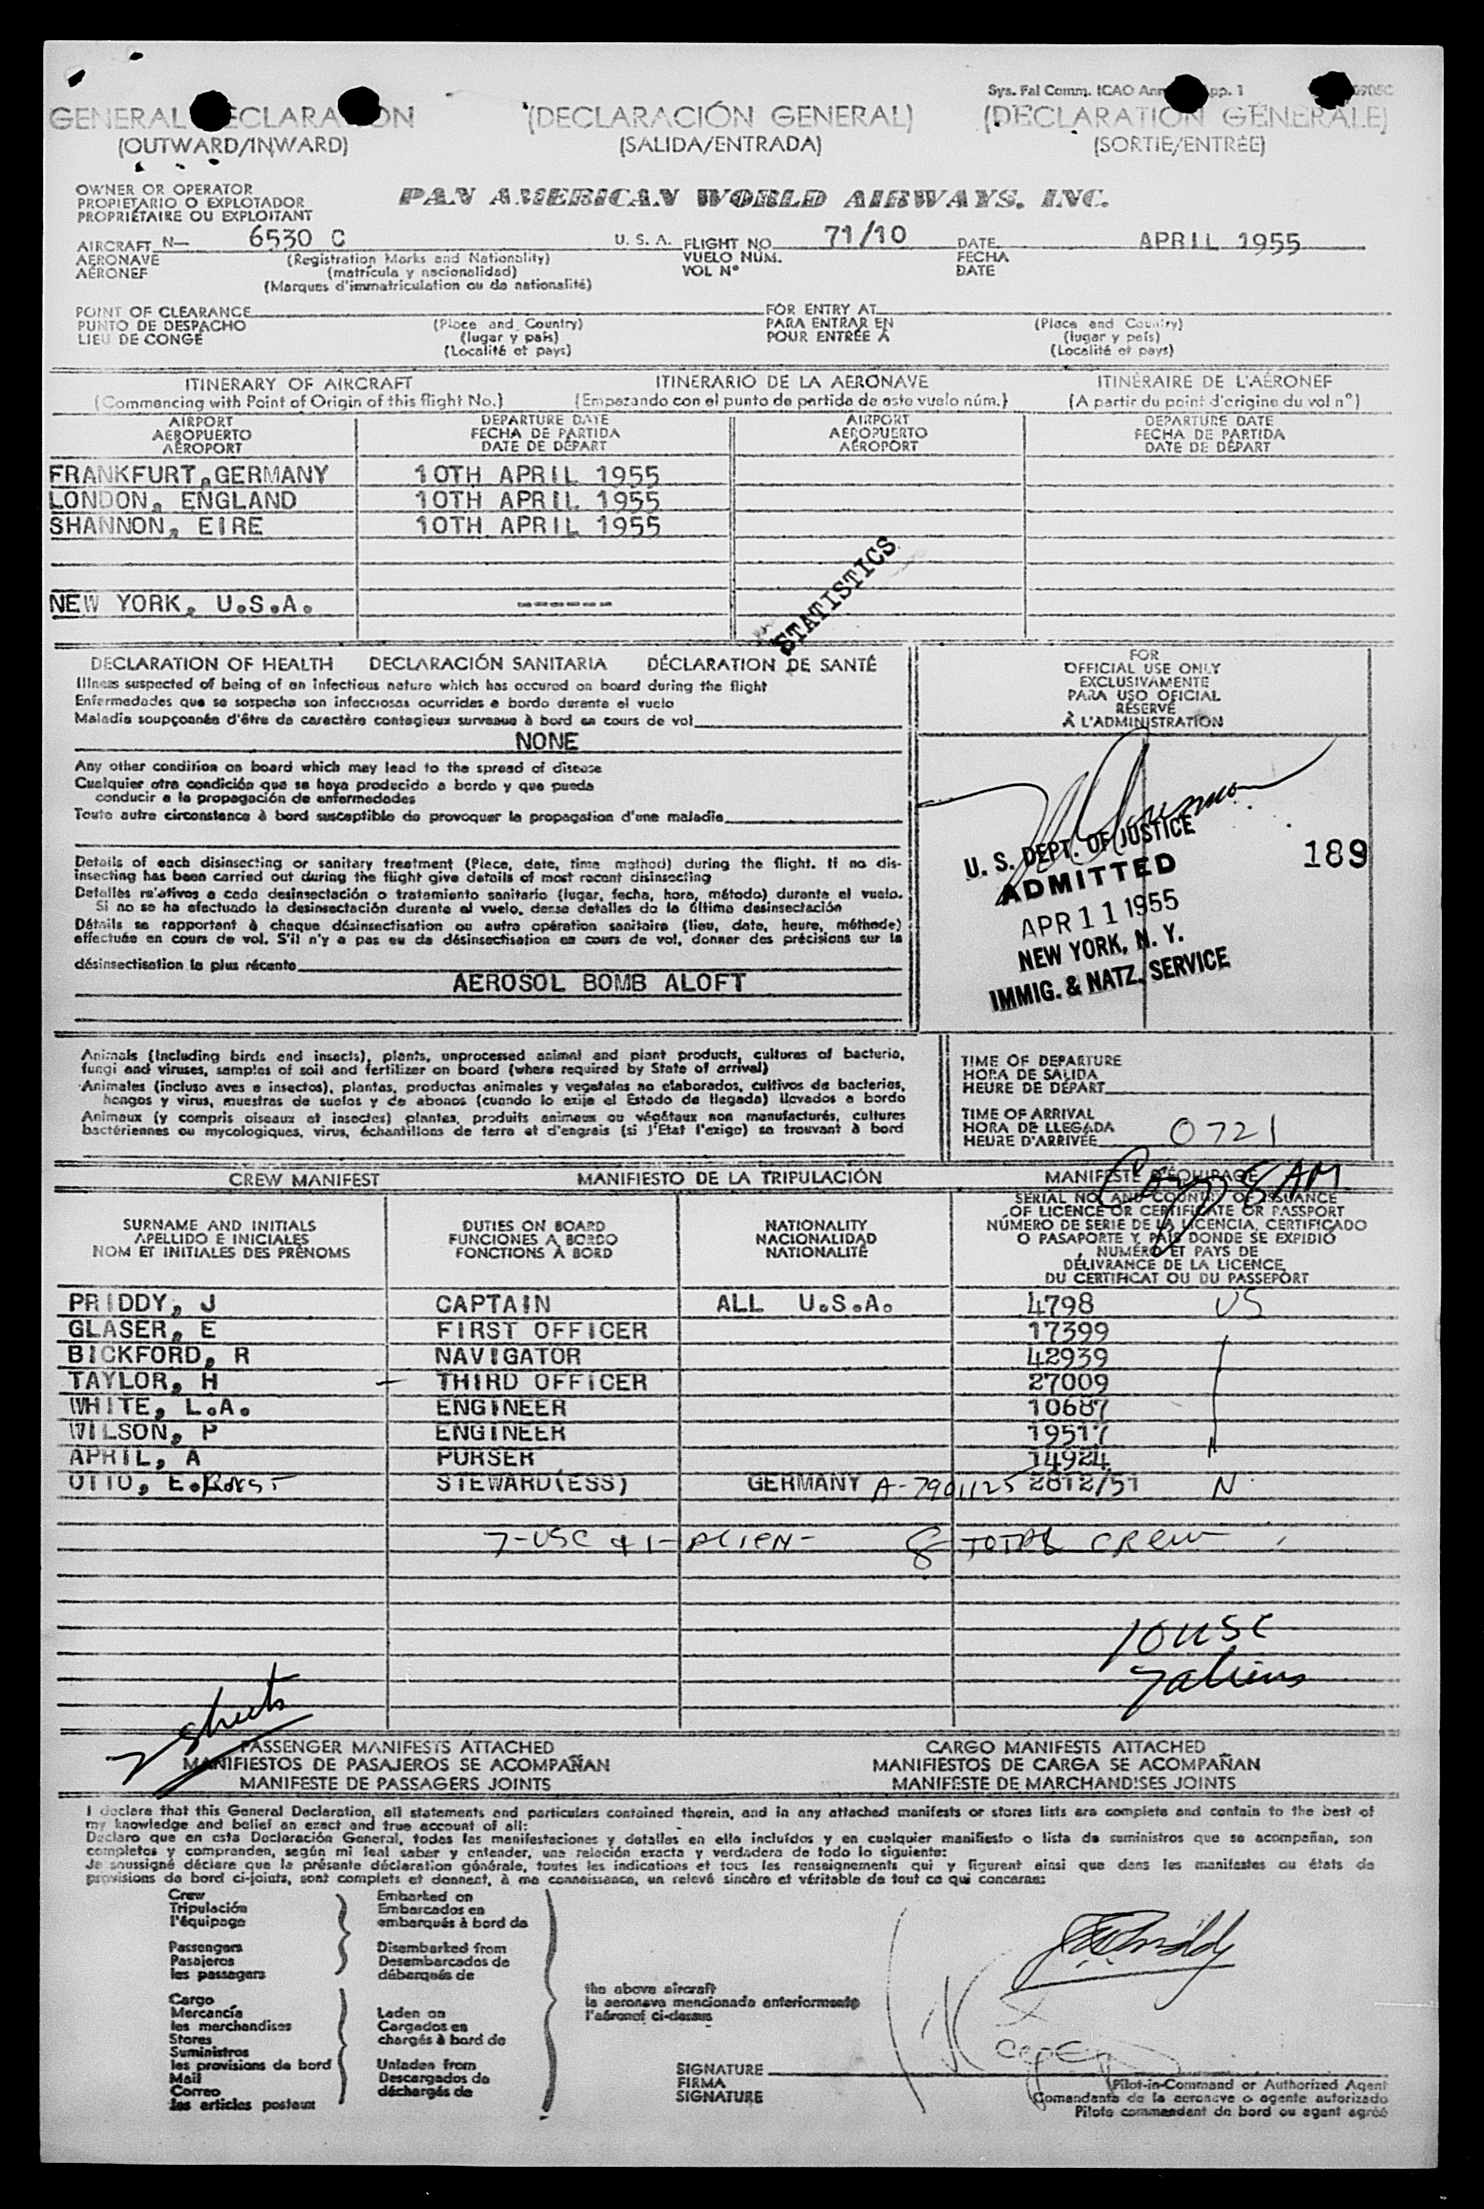 Sys. Fal Comm. ICAO Ann pp. 1
GENERAL DECLARATION (DECLARACIÓN GENERAL) (DÉCLARATION GÉNÉRALE)
(OUTWARD/INWARD) (SALIDA/ENTRADA) (SORTIE/ENTRÉE)
OWNER OR OPERATOR
PROPIETARIO O EXPLOTADOR
PROPRIÉTAIRE OU EXPLOITANT
PAN AMERICAN WORLD AIRWAYS, INC.
AIRCRAFT N— 6530 C U. S. A. FLIGHT NO. 71/10 DATE APRIL 1955
AERONAVE (Registration Marks and Nationality) VUELO NÚM. FECHA
AÉRONEF (matrícula y nacionalidad) VOL N° DATE
(Marques d'immatriculation ou de nationalité)
POINT OF CLEARANCE FOR ENTRY AT
PUNTO DE DESPACHO (Place and Country) PARA ENTRAR EN (Place and Country)
LIEU DE CONGÉ (lugar y país) POUR ENTRÉE À (lugar y país)
(Localité et pays) (Localité et pays)
ITINERARY OF AIRCRAFT ITINERARIO DE LA AERONAVE ITINÉRAIRE DE L'AÉRONEF
(Commencing with Point of Origin of this flight No.) (Empezando con el punto de partida de este vuelo núm.) (A partir du point d'origine du vol n°)
AIRPORT DEPARTURE DATE AIRPORT DEPARTURE DATE
AEROPUERTO FECHA DE PARTIDA AEROPUERTO FECHA DE PARTIDA
AÉROPORT DATE DE DÉPART AÉROPORT DATE DE DÉPART
FRANKFURT,GERMANY 10TH APRIL 1955
LONDON, ENGLAND 10TH APRIL 1955
SHANNON, EIRE 10TH APRIL 1955
NEW YORK, U.S.A. -------
STATISTICS
DECLARATION OF HEALTH DECLARACIÓN SANITARIA DÉCLARATION DE SANTÉ
Illness suspected of being of an infectious nature which has occured on board during the flight
Enfermedades que se sospecha son infecciosas ocurridas a bordo durante el vuelo
Maladie soupçonnée d'être de caractère contagieux survenue à bord en cours de vol
NONE
Any other condition on board which may lead to the spread of disease
Cualquier otra condición que se haya producido a bordo y que pueda
conducir a la propagación de enfermedades
Toute autre circonstance à bord susceptible de provoquer la propagation d'une maladie
Details of each disinsecting or sanitary treatment (Place, date, time method) during the flight. If no dis-
insecting has been carried out during the flight give details of most recent disinsecting
Detalles relativos a cada desinsectación o tratamiento sanitario (lugar, fecha, hora, método) durante el vuelo.
Si no se ha efectuado la desinsectación durante el vuelo, dense detalles de la última desinsectación
Détails se rapportant à chaque désinsectisation ou autre opération sanitaire (lieu, date, heure, méthode)
effectuée en cours de vol. S'il n'y a pas eu de désinsectisation en cours de vol, donner des précisions sur la
désinsectisation la plus récente
AEROSOL BOMB ALOFT
FOR
OFFICIAL USE ONLY
EXCLUSIVAMENTE
PARA USO OFICIAL
RÉSERVÉ
À L'ADMINISTRATION
U. S. DEPT. OF JUSTICE
ADMITTED
APR 11 1955
NEW YORK, N. Y.
IMMIG. & NATZ. SERVICE
189
Animals (including birds and insects), plants, unprocessed animal and plant products, cultures of bacteria,
fungi and viruses, samples of soil and fertilizer on board (where required by State of arrival)
Animales (incluso aves e insectos), plantas, productos animales y vegetales no elaborados, cultivos de bacterias,
hongos y virus, muestras de suelos y de abonos (cuando lo exija el Estado de llegada) llevados a bordo
Animaux (y compris oiseaux et insectes) plantes, produits animaux ou végétaux non manufacturés, cultures
bactériennes ou mycologiques, virus, échantillons de terre et d'engrais (si l'Etat l'exige) se trouvant à bord
TIME OF DEPARTURE
HORA DE SALIDA
HEURE DE DÉPART
TIME OF ARRIVAL
HORA DE LLEGADA
HEURE D'ARRIVÉE 0721
8 AM
CREW MANIFEST MANIFIESTO DE LA TRIPULACIÓN MANIFESTE D'ÉQUIPAGE
SURNAME AND INITIALS
APELLIDO E INICIALES
NOM ET INITIALES DES PRÉNOMS
DUTIES ON BOARD
FUNCIONES A BORDO
FONCTIONS À BORD
NATIONALITY
NACIONALIDAD
NATIONALITÉ
SERIAL NO. AND COUNTRY OF ISSUANCE
OF LICENCE OR CERTIFICATE OR PASSPORT
NÚMERO DE SERIE DE LA LICENCIA, CERTIFICADO
O PASAPORTE Y PAÍS DONDE SE EXPIDIÓ
NUMÉRO ET PAYS DE
DÉLIVRANCE DE LA LICENCE,
DU CERTIFICAT OU DU PASSEPORT
PRIDDY, J CAPTAIN ALL U.S.A. 4798 US
GLASER, E FIRST OFFICER 17399
BICKFORD, R NAVIGATOR 42939
TAYLOR, H — THIRD OFFICER 27009
WHITE, L.A. ENGINEER 10687
WILSON, P ENGINEER 19517
APRIL, A PURSER 14924
OTTO, E. STEWARD(ESS) GERMANY A-7901125 2612/51 N
7-USC & 1- ALIEN- 8 TOTAL CREW
10 USC
7 aliens
2 sheets
PASSENGER MANIFESTS ATTACHED CARGO MANIFESTS ATTACHED
MANIFIESTOS DE PASAJEROS SE ACOMPAÑAN MANIFIESTOS DE CARGA SE ACOMPAÑAN
MANIFESTE DE PASSAGERS JOINTS MANIFESTE DE MARCHANDISES JOINTS
I declare that this General Declaration, all statements and particulars contained therein, and in any attached manifests or stores lists are complete and contain to the best of
my knowledge and belief an exact and true account of all:
Declaro que en esta Declaración General, todas las manifestaciones y detalles en ella incluídos y en cualquier manifiesto o lista de suministros que se acompañan, son
completos y comprenden, según mi leal saber y entender, una relación exacta y verdadera de todo lo siguiente:
Je soussigné déclare que la présente déclaration générale, toutes les indications et tous les renseignements qui y figurent ainsi que dans les manifestes ou états de
provisions de bord ci-joints, sont complets et donnent, à ma connaissance, un relevé sincère et véritable de tout ce qui concerne:
Crew Embarked on
Tripulación Embarcados en
l'équipage embarqués à bord de
Passengers Disembarked from
Pasajeros Desembarcados de
les passagers débarqués de
the above aircraft
la aeronave mencionada anteriormente
l'aéronef ci-dessus
Cargo
Mercancía Laden on
les marchandises Cargados en
Stores chargés à bord de
Suministros
les provisions de bord Unladen from
Mail Descargados de
Correo déchargés de
les articles postaux
SIGNATURE
FIRMA
SIGNATURE
Pilot-in-Command or Authorized Agent
Comandante de la aeronave o agente autorizado
Pilote commandant de bord ou agent agréé